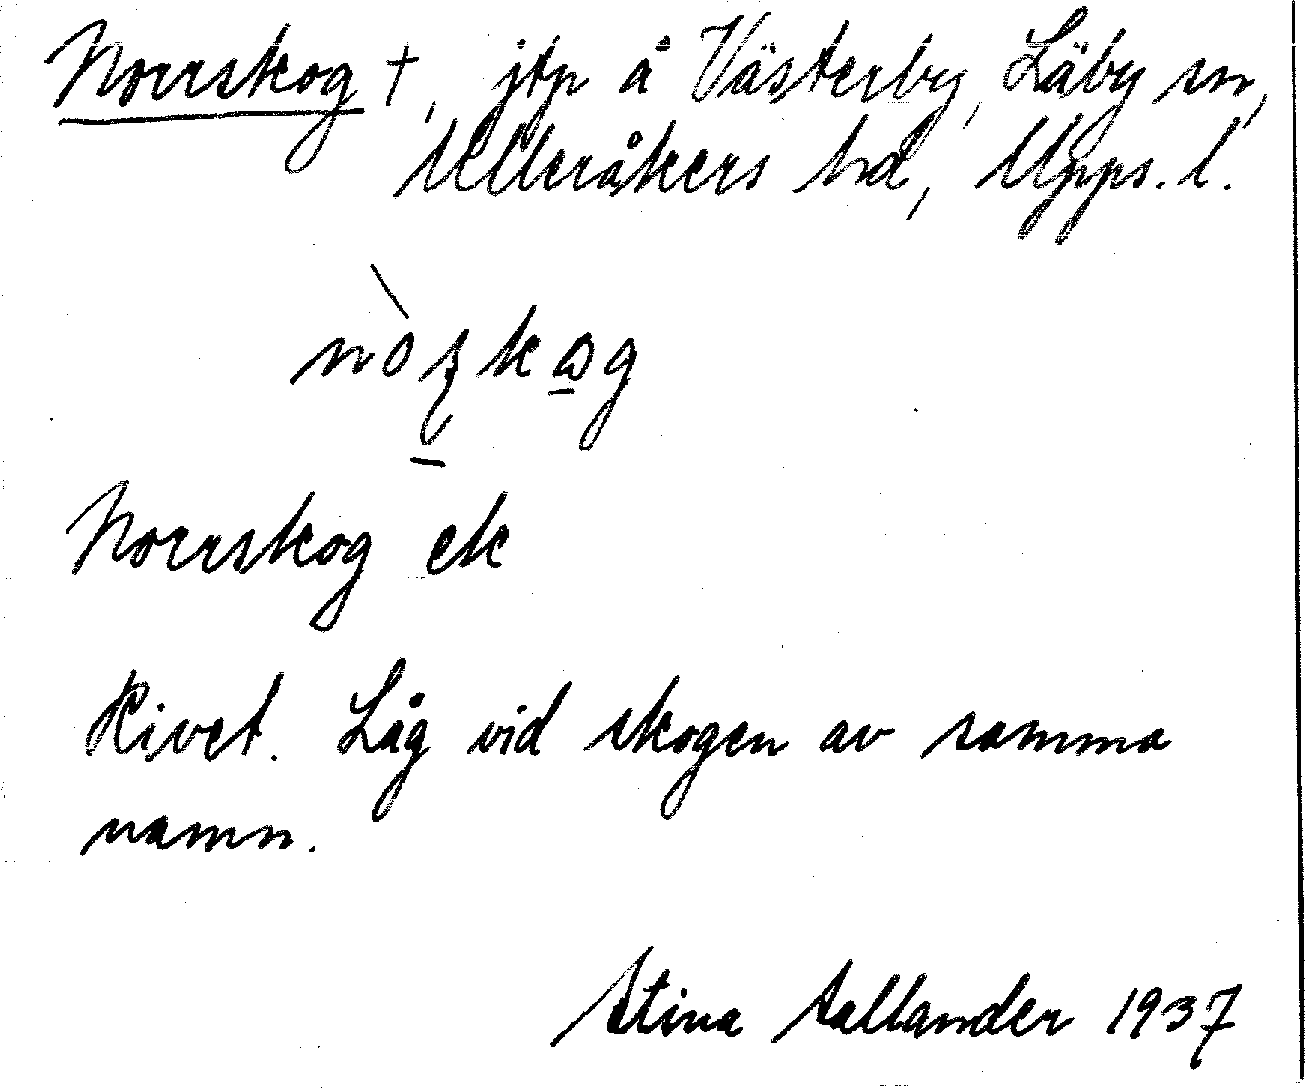 Norrskog †, jtp å Västerby, Läby sn,
Ulleråkers hd, Upps. l.
Norrskog ek
Rivet. Låg vid skogen av samma
namn.
Stina Tallander 1937